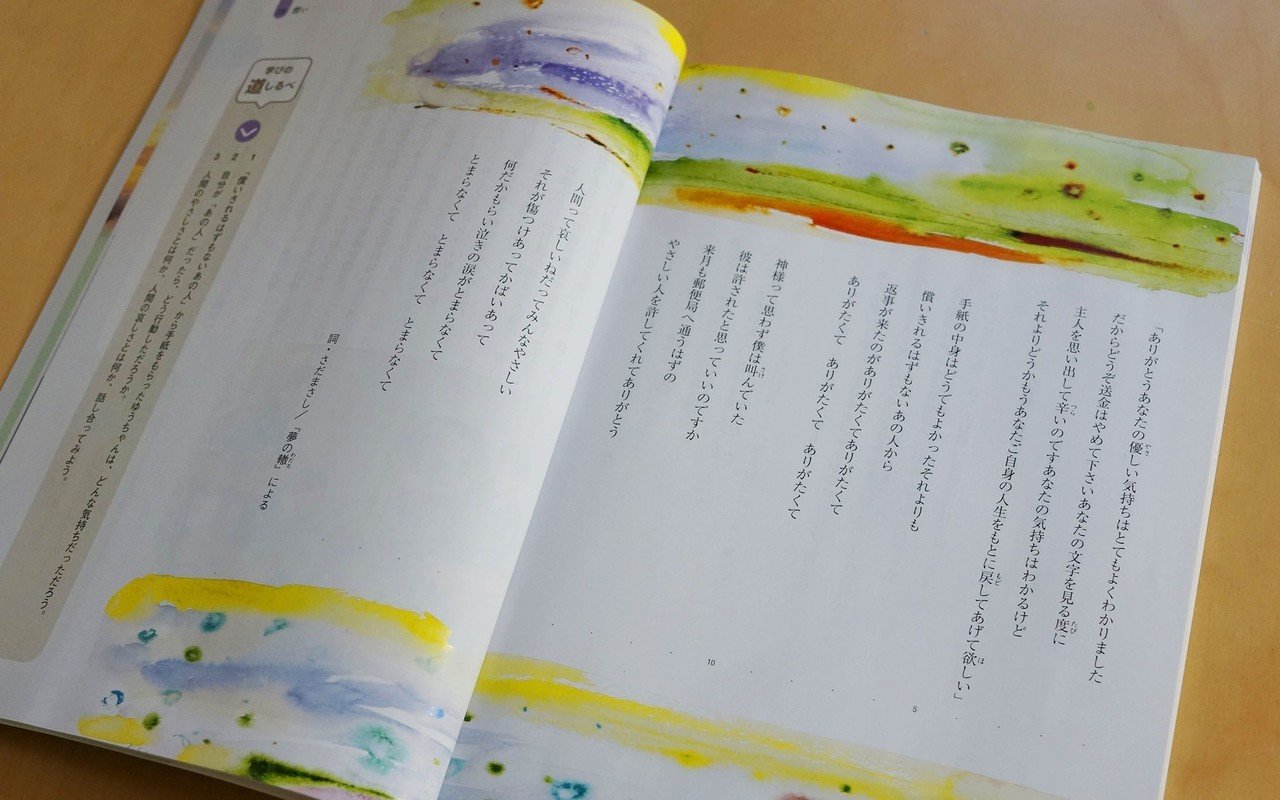 「ありがとうあなたの優しい気持ちはとてもよくわかりました
だからどうぞ送金はやめて下さいあなたの文字を見る度に
主人を思い出して辛いのですあなたの気持ちはわかるけど
それよりどうかもうあなたご自身の人生をもとに戻してあげて欲しい」
手紙の中身はどうでもよかったそれよりも
償いきれるはずもないあの人から
返事が来たのがありがたくてありがたくて
ありがたくて ありがたくて ありがたくて
神様って思わず僕は叫んでいた
彼は許されたと思っていいのですか
来月も郵便局へ通うはずの
やさしい人を許してくれてありがとう
5
10
人間って哀しいねだってみんなやさしい
それが傷つけあってかばいあって
何だかもらい泣きの涙がとまらなくて
とまらなくて とまらなくて とまらなくて
詞・さだまさし/『夢の轍』による
学びの
道しるべ
1 「償いきれるはずもないあの人」から手紙をもらったゆうちゃんは、どんな気持ちだっただろう。
2 自分が「あの人」だったら、どう行動しただろうか。
3 人間のやさしさとは何か、人間の哀しさとは何か、話し合ってみよう。